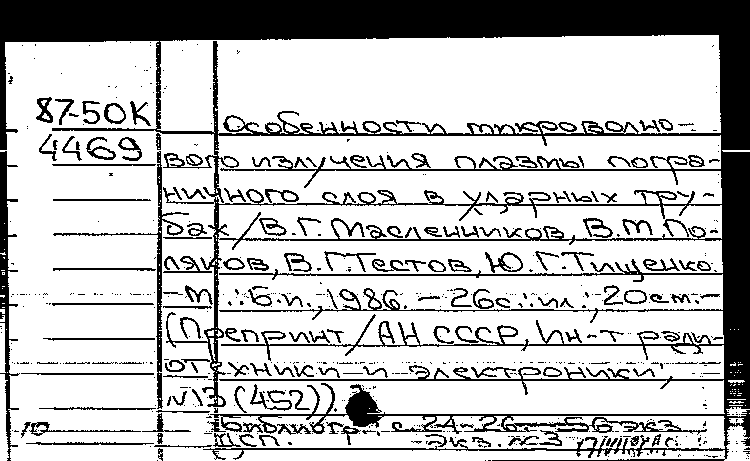 87-50К
4469
Особенности микроволно-
вого излучения плазмы погра-
ничного слоя в ударных тру-
бах / В.Г. Масленников, В.М. По-
ляков, В.Г. Тестов, Ю.Г. Тищенко.
- М.: Б.и., 1986. - 26с.: ил.; 20см. -
(Препринт / АН СССР, Ин-т ради-
отехники и электроники;
№13 (452)).
Библиогр.: с. 24-26 56 экз
ДСП. экз. №3
10